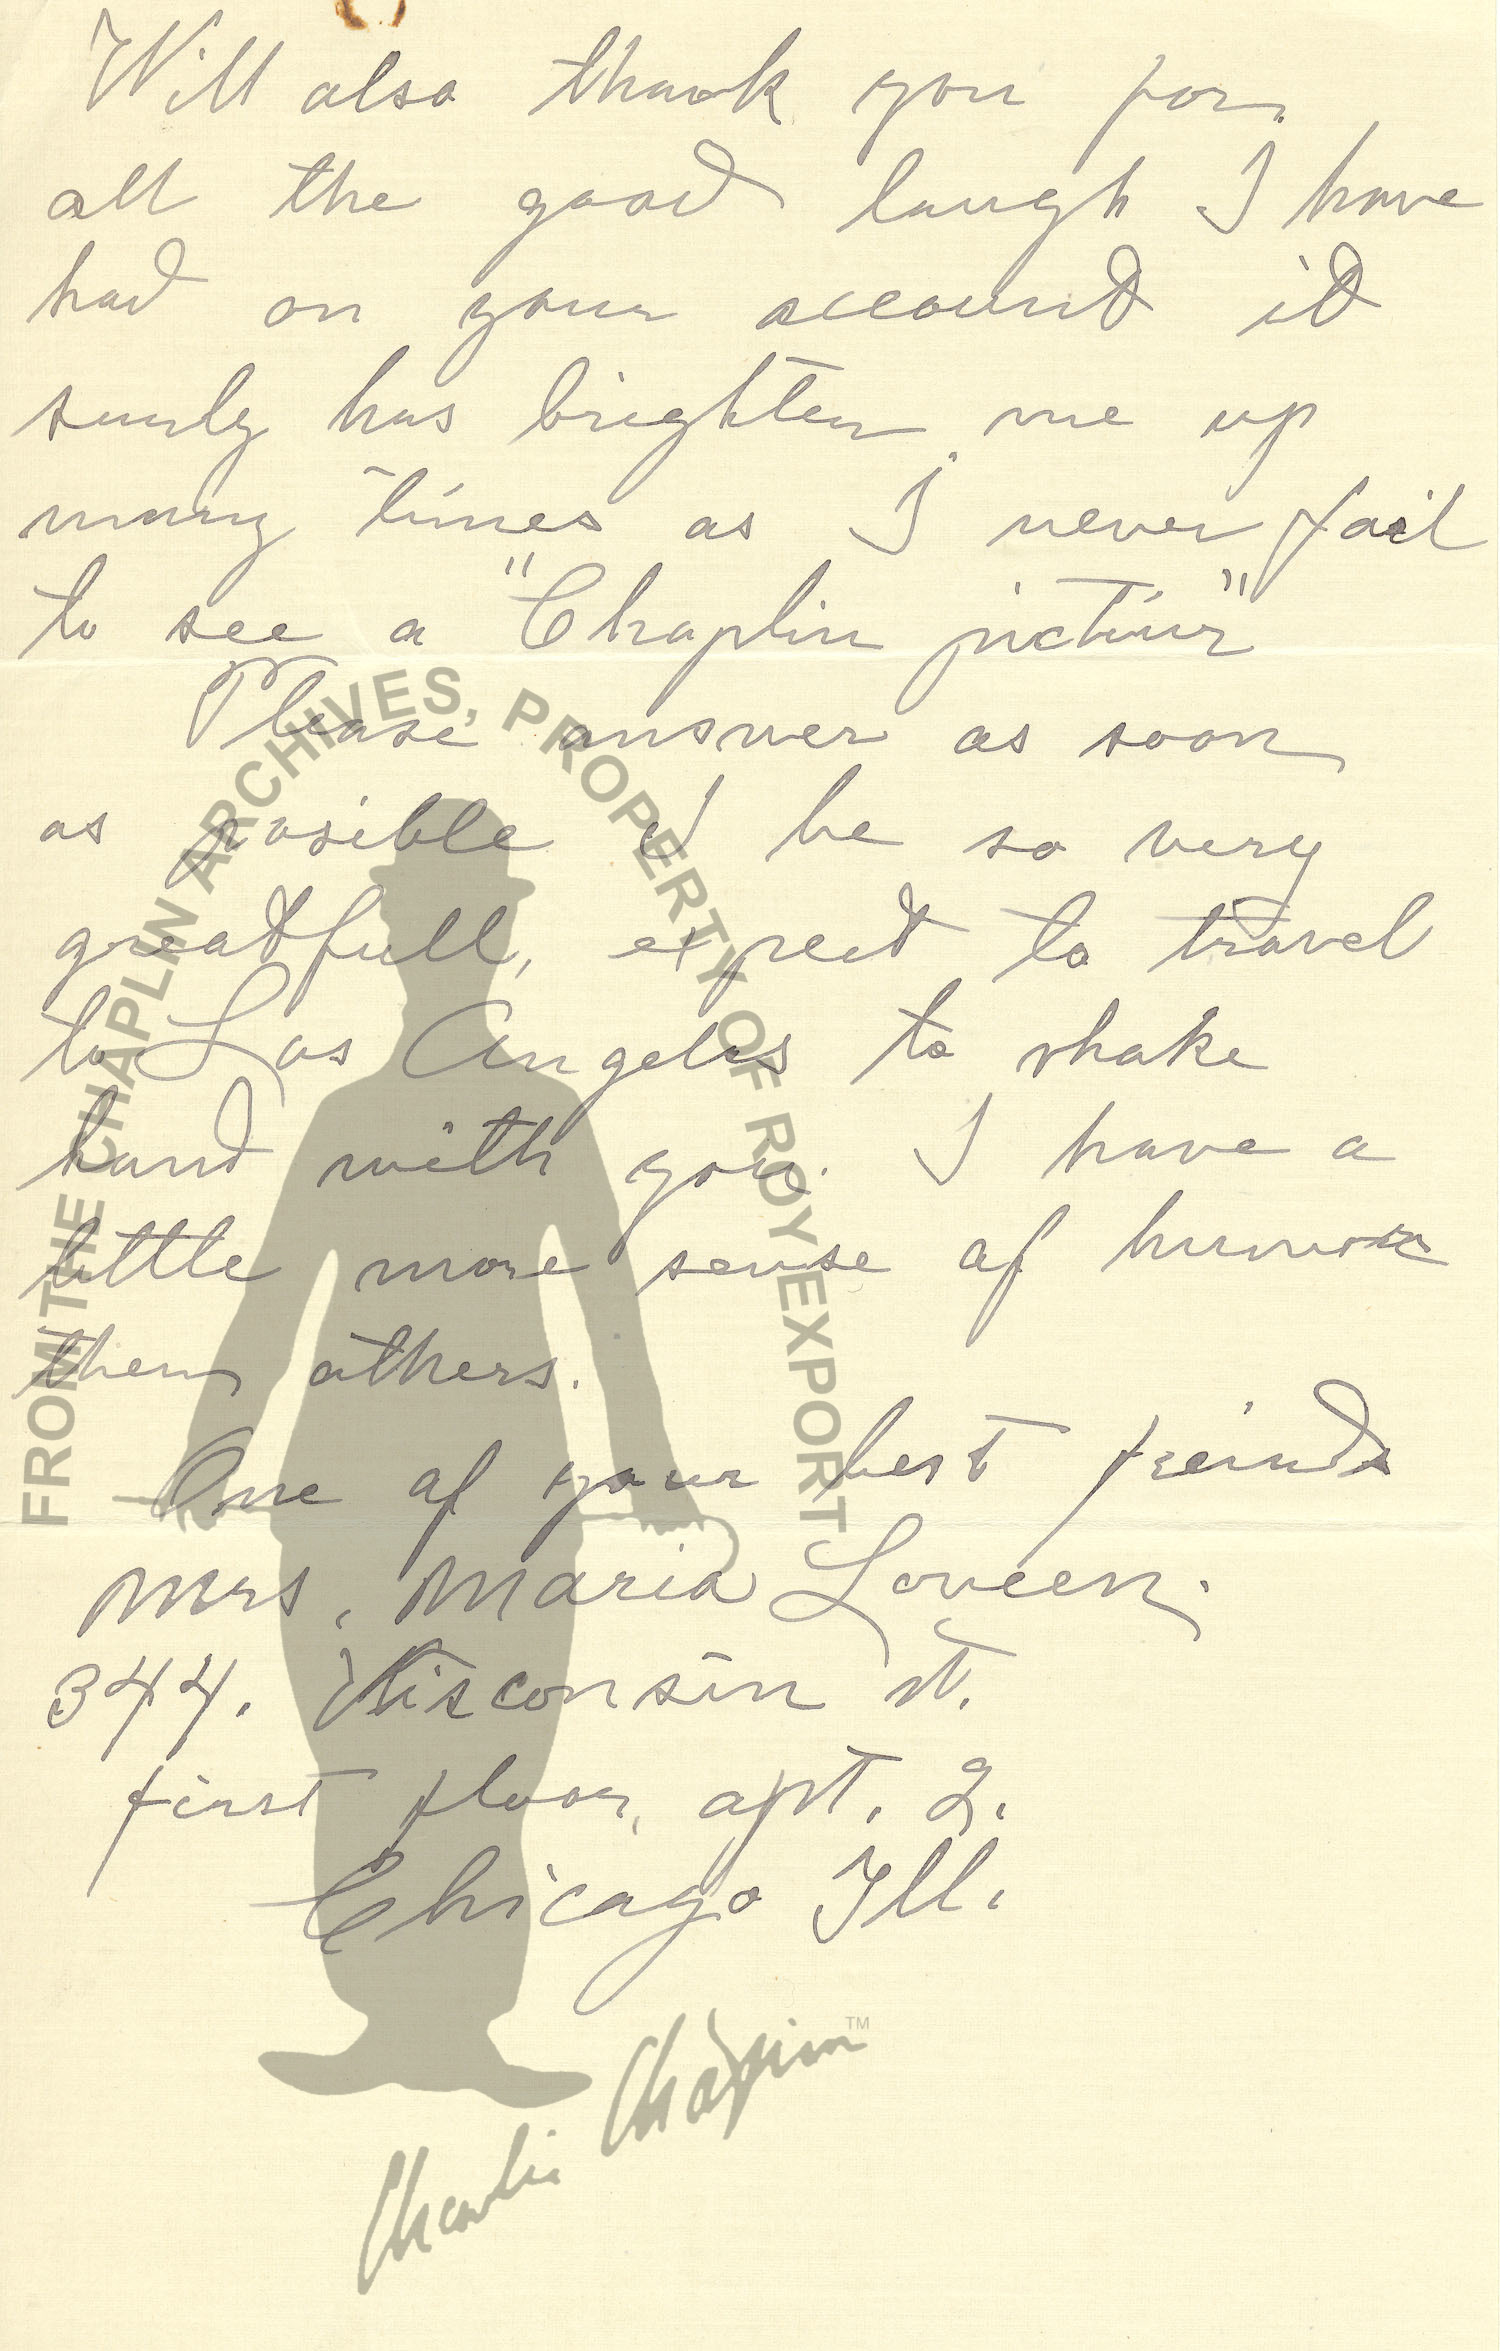 Will also thank you for
all the good laugh I have
had on your account it
surely has brighten me up
many times as I never fail
to see a "Chaplin pictiur"
Please answer as soon
as posible I be so very
greatfull, expect to travel
to Los Angeles to shake
hand with you. I have a
little more sense of humor
then others.
One of your best freinds
Mrs, Maria Loveen.
344. Wisconsin st.
first floor, apt. 2.
Chicago Ill.
FROM THE CHAPLIN ARCHIVES, PROPERTY OF ROY EXPORT
Charlie Chaplin TM